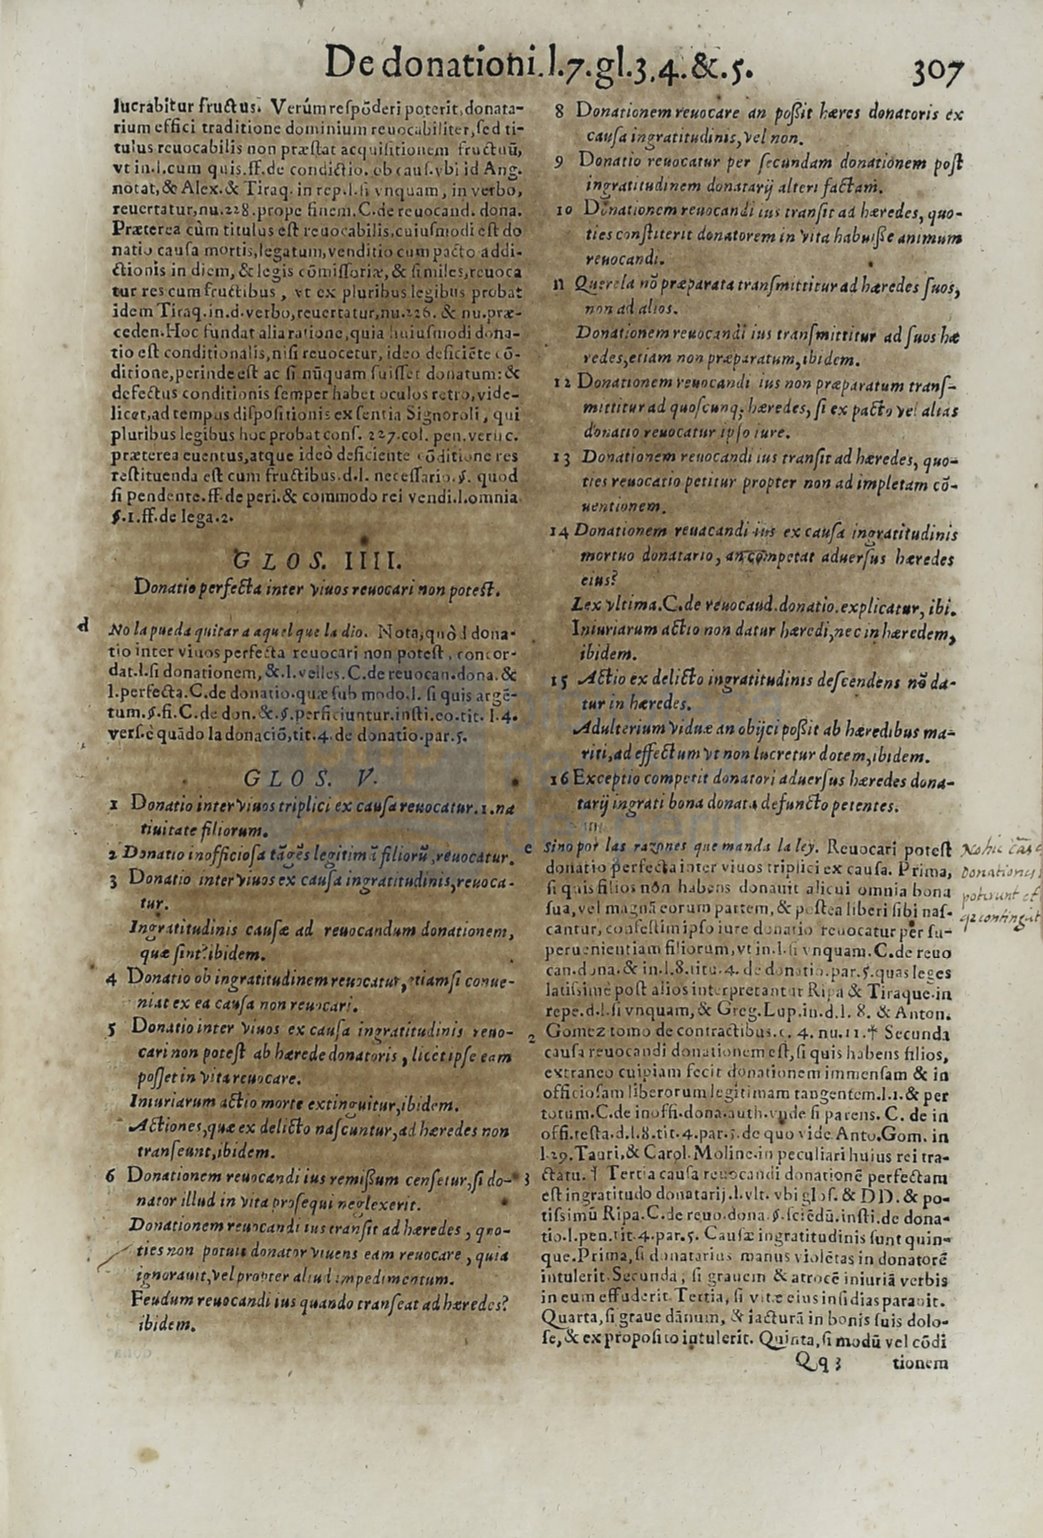 De donationi.l.7.gl.3.4.&.5. 307
lucrabitur fructus. Verùm respõderi poterit, donata-
rium effici traditione dominium reuocabiliter, sed ti-
tulus reuocabilis non præstat acquisitionem fructuũ,
vt in.l.cum quis.ff.de condictio.ob caus.vbi id Ang.
notat, & Alex.& Tiraq. in rep.l.si vnquam, in verbo,
reuertatur, nu.228.prope finem.C.de reuocand. dona.
Præterea cùm titulus est reuocabilis, cuiusmodi est do
natio causa mortis, legatum, venditio cum pacto addi-
ctionis in diem, & legis cõmissoriæ, & similes, reuoca
tur res cum fructibus, vt ex pluribus legibus probat
idem Tiraq.in.d.verbo, reuertatur, nu.226. & nu.præ-
ceden. Hoc fundat alia ratione, quia huiusmodi dona-
tio est conditionalis, nisi reuocetur, ideo deficiẽte cõ-
ditione, perinde est ac si nũquam fuisset donatum: &
defectus conditionis semper habet oculos retro, vide-
licet, ad tempus dispositionis ex sentia Signoroli, qui
pluribus legibus hoc probat cons. 227.col. pen. versic.
præterea euentus, atque ideò deficiente cõditione res
restituenda est cum fructibus.d.l. necessario.§. quod
si pendente.ff.de peri.& commodo rei vendi.l.omnia
§.1.ff.de lega.2.
GLOS. IIII.
Donatio perfecta inter viuos reuocari non potest.
d No la pueda quitar a aquel que la dio. Nota, quòd dona-
tio inter viuos perfecta reuocari non potest, concor-
dat.l.si donationem, &.l.velles.C.de reuocan.dona.&
l.perfecta.C.de donatio.quæ sub modo.l. si quis argẽ-
tum.§.fi.C.de don.&.§.perficiuntur.insti.eo.tit. l.4.
vers.è quãdo la donaciõ, tit.4.de donatio.par.5.
GLOS. V.
1 Donatio inter viuos triplici ex causa reuocatur. 1.na
tiuitate filiorum.
2 Donatio inofficiosa tãgẽs legitimã filiorũ, reuocatur.
3 Donatio inter viuos ex causa ingratitudinis, reuoca-
tur.
Ingratitudinis causæ ad reuocandum donationem,
quæ sint? ibidem.
4 Donatio ob ingratitudinem reuocatur, etiamsi conue-
niat ex ea causa non reuocari.
5 Donatio inter viuos ex causa ingratitudinis reuo-
cari non potest ab hærede donatoris, licèt ipse eam
posset in vita reuocare.
Iniuriarum actio morte extinguitur, ibidem.
Actiones, quæ ex delicto nascuntur, ad hæredes non
transeunt, ibidem.
6 Donationem reuocandi ius remissum censetur, si do-
nator illud in vita prosequi neglexerit.
Donationem reuocandi ius transit ad hæredes, quo-
ties non potuit donator viuens eam reuocare, quia
ignorauit, vel propter aliud impedimentum.
Feudum reuocandi ius quando transeat ad hæredes?
ibidem.
8 Donationem reuocare an possit hæres donatoris ex
causa ingratitudinis, vel non.
9 Donatio reuocatur per secundam donationem post
ingratitudinem donatarij alteri factam.
10 Donationem reuocandi ius transit ad hæredes, quo-
ties constiterit donatorem in vita habuisse animum
reuocandi.
11 Querela nõ præparata transmittitur ad hæredes suos,
non ad alios.
Donationem reuocandi ius transmittitur ad suos hæ
redes, etiam non præparatum, ibidem.
12 Donationem reuocandi ius non præparatum trans-
mittitur ad quoscunq; hæredes, si ex pacto vel alias
donatio reuocatur ipso iure.
13 Donationem reuocandi ius transit ad hæredes, quo-
ties reuocatio petitur propter non ad impletam cõ-
uentionem.
14 Donationem reuacandi ius ex causa ingratitudinis
mortuo donatario, an cõmpetat aduersus hæredes
eius?
Lex vltima.C.de reuocand.donatio.explicatur, ibi.
Iniuriarum actio non datur hæredi, nec in hæredem,
ibidem.
15 Actio ex delicto ingratitudinis descendens nõ da-
tur in hæredes.
Adulterium viduæ an obijci possit ab hæredibus ma-
riti, ad effectum vt non lucretur dotem, ibidem.
16 Exceptio competit donatori aduersus hæredes dona-
tarij ingrati bona donata defuncto petentes.
e Sino por las razones que manda la ley. Reuocari potest
donatio perfecta inter viuos triplici ex causa. Prima,
si quis filios non habens donauit alicui omnia bona
sua, vel magnã eorum partem, & postea liberi sibi nas-
cantur, confestim ipso iure donatio reuocatur per su-
peruenientiam filiorum, vt in.l.si vnquam.C.de reuo
can.dona.& in.l.8.titu.4. de donatio.par.5.quas leges
latissimè post alios interpretantur Ripa & Tiraque.in
repe.d.l.si vnquam, & Greg.Lup.in.d.l. 8. & Anton.
2 Gomez tomo de contractibus.c. 4. nu.11.† Secunda
causa reuocandi donationem est, si quis habens filios,
extraneo cuipiam fecit donationem immensam & in
officiosam liberorum legitimam tangentem.l.1.& per
totum.C.de inoffi.dona.auth.vnde si parens. C. de in
offi.testa.d.l.8.tit.4.par.5.de quo vide Anto.Gom. in
l.29.Tauri, & Carol.Moline.in peculiari huius rei tra-
3 ctatu. † Tertia causa reuocandi donationẽ perfectam
est ingratitudo donatarij.l.vlt. vbi glos. & DD. & po-
tissimũ Ripa.C.de reuo.dona.§.sciẽdũ.insti.de dona-
tio.l.pen.tit.4.par.5. Causæ ingratitudinis sunt quin-
que. Prima, si donatarius manus violẽtas in donatorẽ
intulerit. Secunda, si grauem & atrocẽ iniuriã verbis
in eum effuderit. Tertia, si vitæ eius insidias parauit.
Quarta, si graue dãnum, & iacturã in bonis suis dolo-
se, & ex proposito intulerit. Quinta, si modũ vel cõdi
Qq 3 tionem